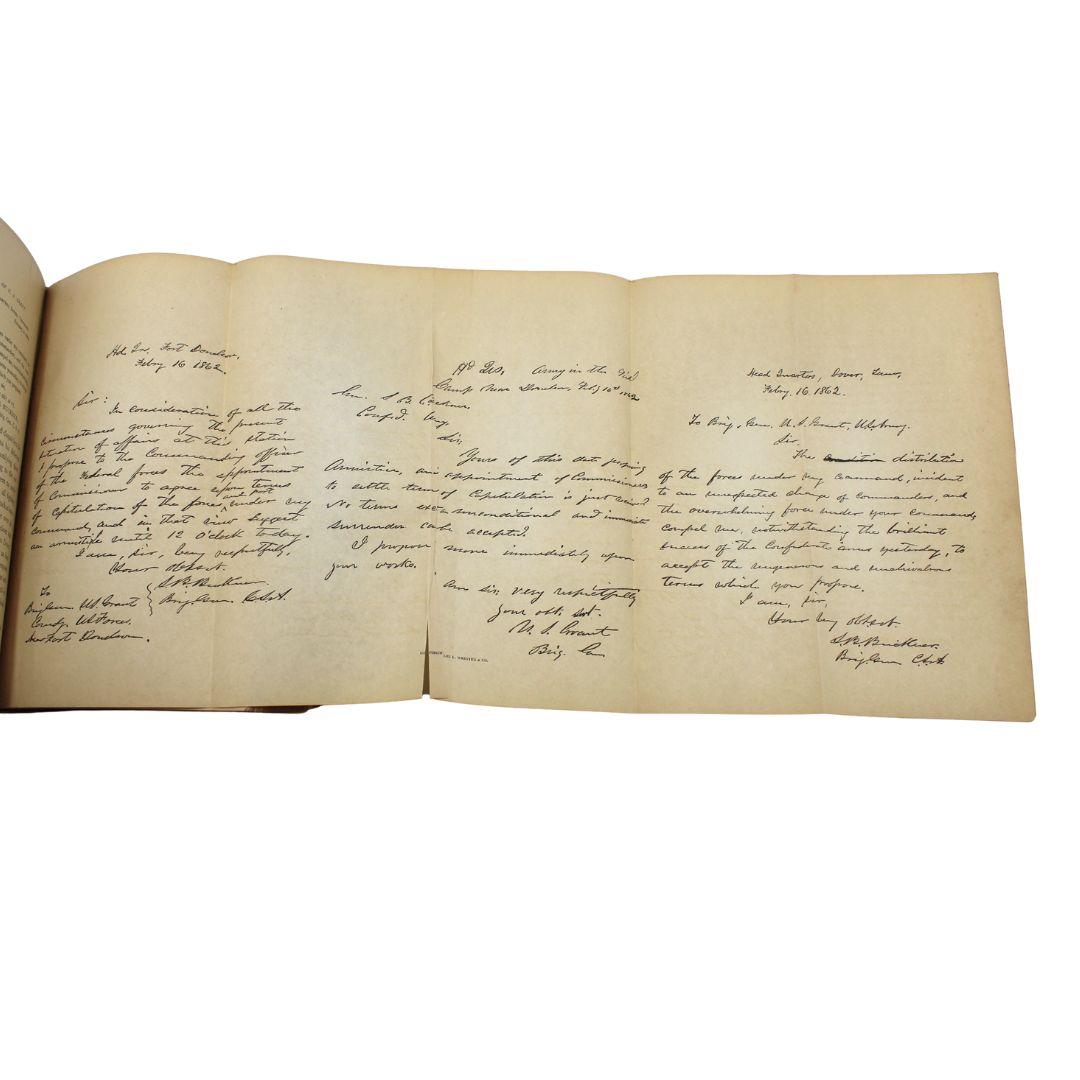 Hd. Qrs. Fort Donelson,
Febry 16 1862.
Sir:
In consideration of all the
circumstances governing the present
situation of affairs at this station
I propose to the Commanding officer
of the Federal forces the appointment
of Commissioners to agree upon terms
of capitulation of the forces and post under my
command, and in that view suggest
an armistice until 12 o'clock today.
I am, sir, very respectfully,
Your obt. svt.
S. B. Buckner
Brig. Gen. C.S.A.
To
Brig. Gen. U.S. Grant
Comdg. US Forces.
Near Fort Donelson.
Hd Qrs, Army in the Field
Camp Near Donelson, Feb.y 16th 1862
Gen. S. B. Buckner,
Confed. Army
Sir,
Yours of this date proposing
Armistice, and appointment of Commissioners
to settle terms of Capitulation is just recd.
No terms except unconditional and immediate
surrender can be accepted.
I propose to move immediately upon
your works.
I am sir, very respectfully
Your obt. svt.
U. S. Grant
Brig. Gen
Head Quarters, Dover, Tenn,
Febry. 16 1862.
To Brig. Gen. U. S. Grant, U.S. Army.
Sir,
The distribution
of the forces under my command, incident
to an unexpected change of commanders, and
the overwhelming force under your command,
compel me, notwithstanding the brilliant
success of the Confederate arms yesterday, to
accept the ungenerous and unchivalrous
terms which you propose.
I am, sir,
Your very obt. svt.
S. B. Buckner.
Brig. Gen C.S.A